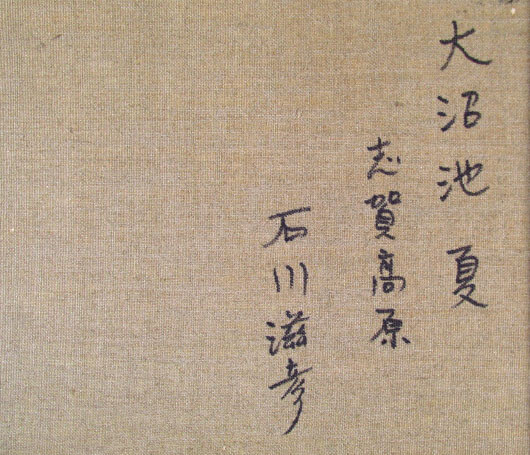 大沼池 夏
志賀高原
石川滋彦